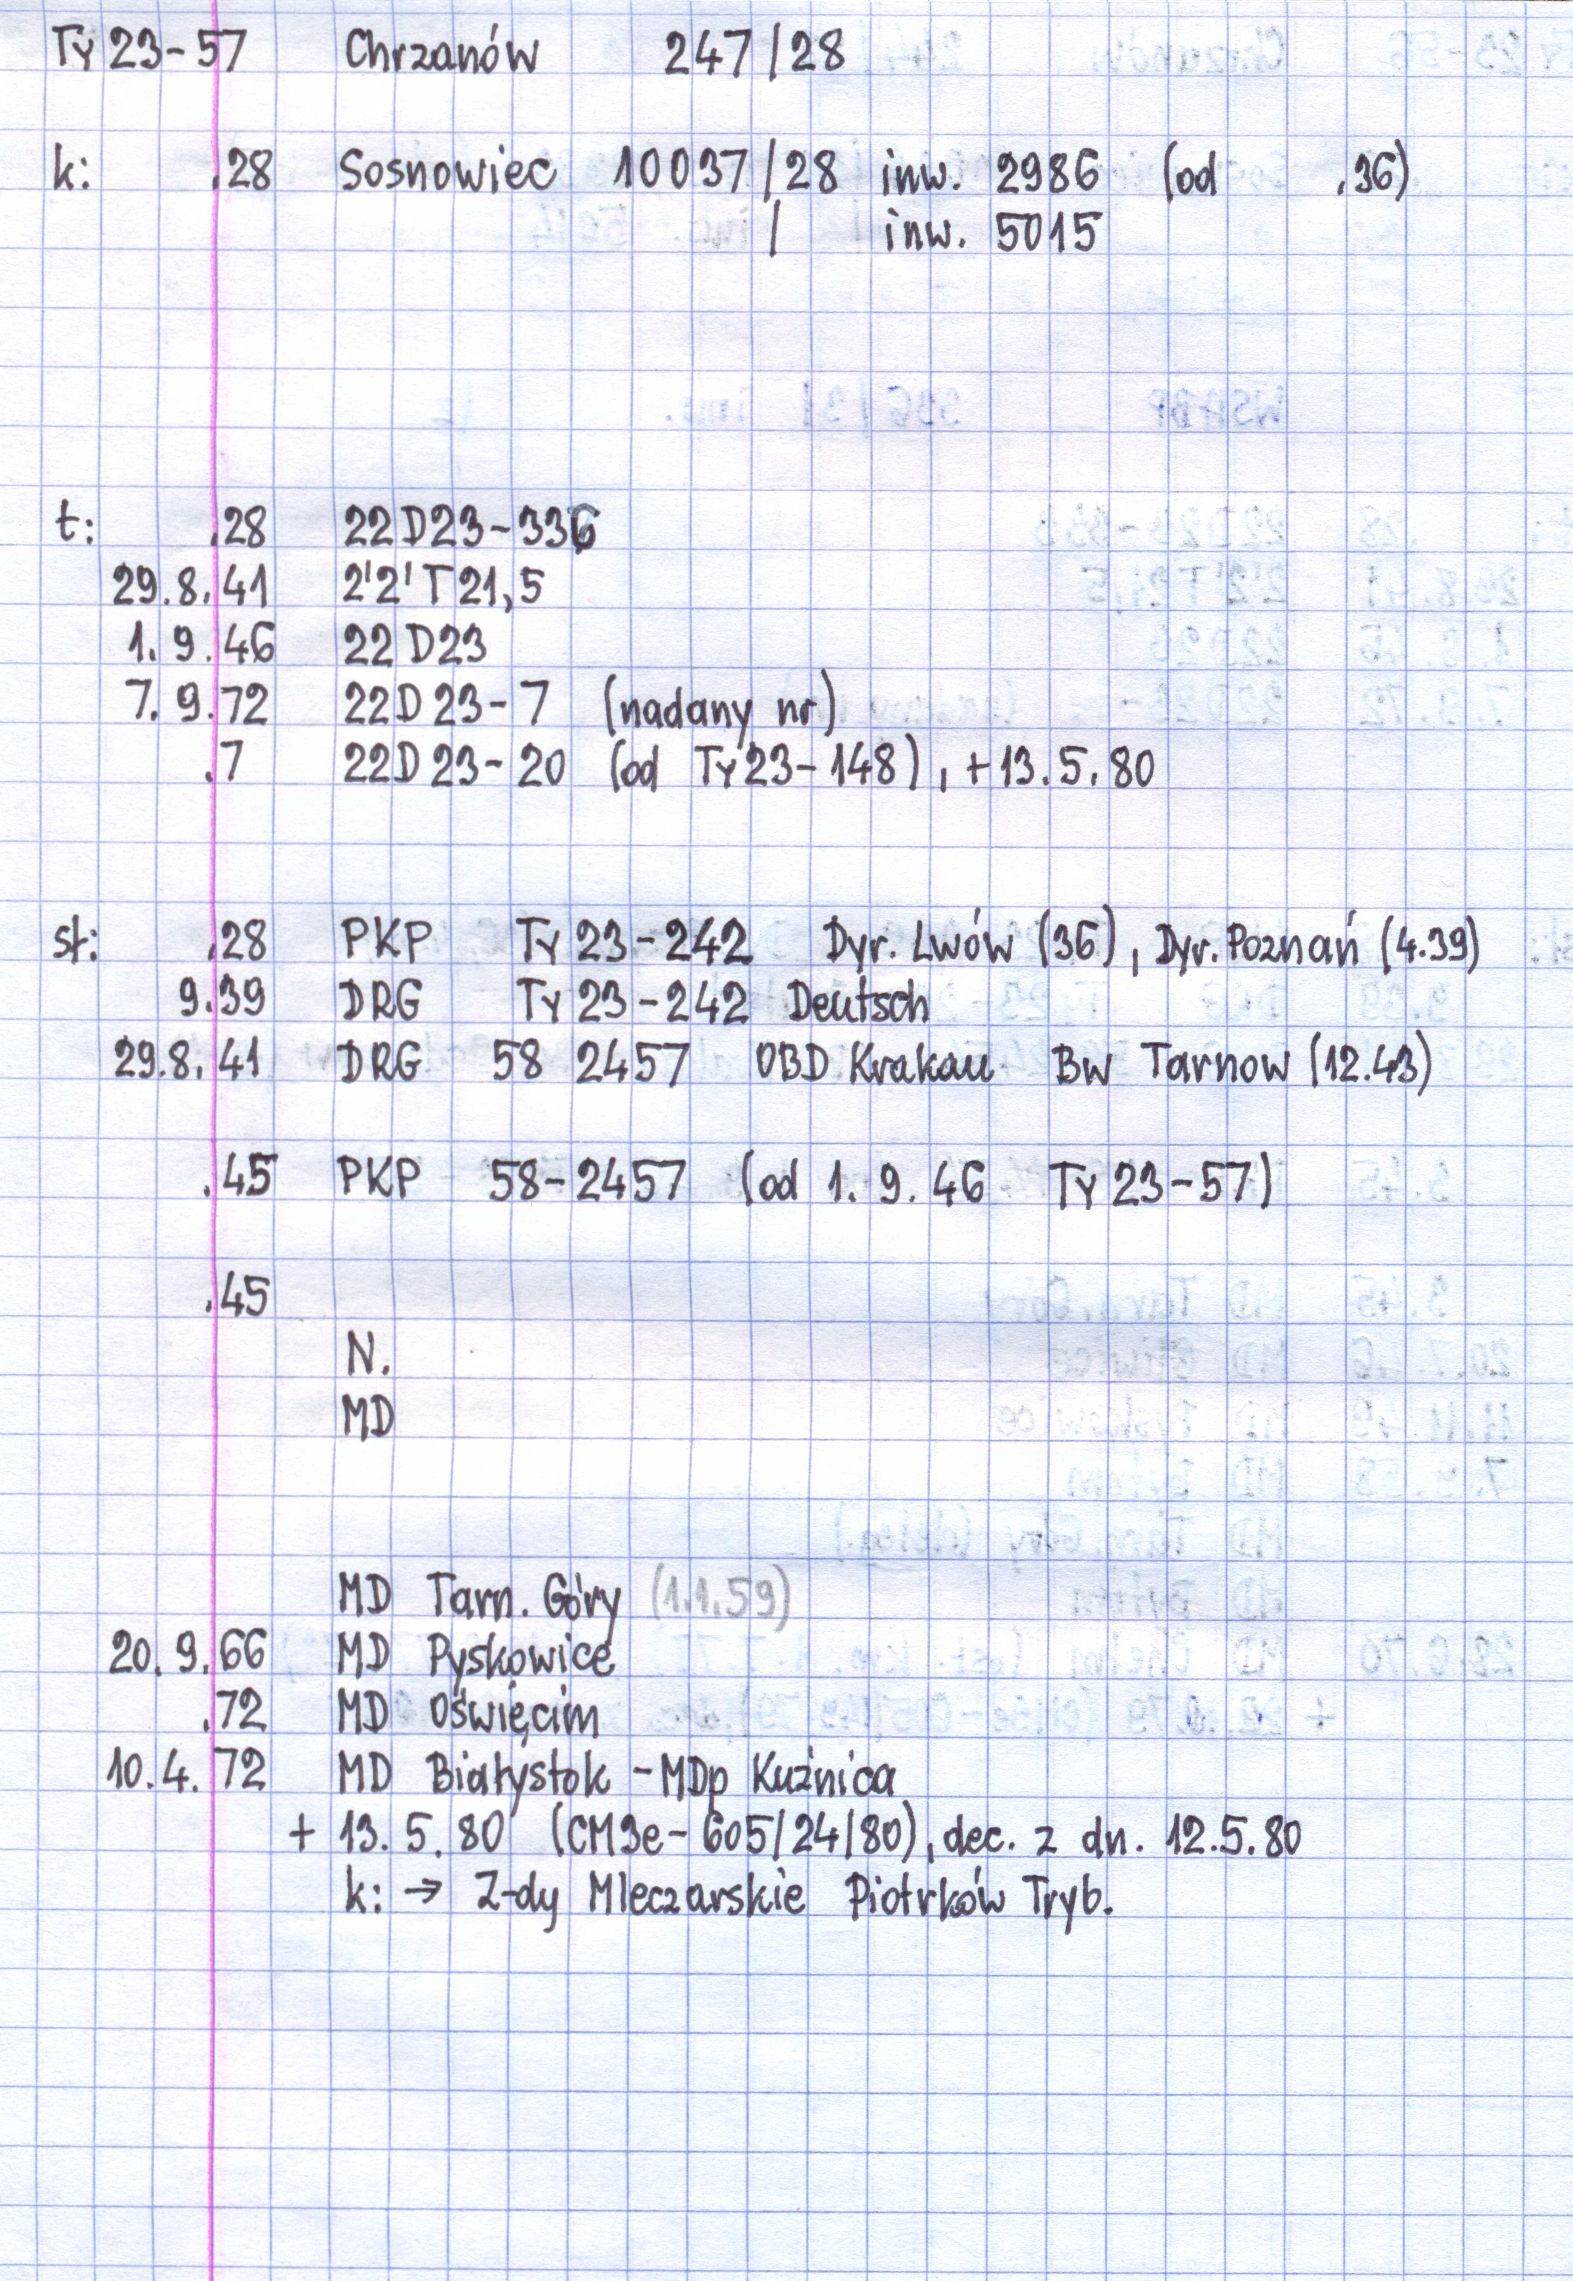 Ty 23-57 Chrzanów 247/28
k: .28 Sosnowiec 10037/28 inw. 2986 (od .36)
/ inw. 5015
t: .28 22D23-336
29.8.41 2'2'T21,5
1.9.46 22D23
7.9.72 22D23-7 (nadany nr)
.7 22D23-20 (od Ty23-148), +13.5.80
sł: .28 PKP Ty23-242 Dyr. Lwów (36), Dyr. Poznań (4.39)
9.39 DRG Ty23-242 Deutsch
29.8.41 DRG 58 2457 OBD Krakau Bw Tarnow (12.43)
.45 PKP 58-2457 (od 1.9.46 Ty23-57)
.45
N.
MD
MD Tarn. Góry (1.1.59)
20.9.66 MD Pyskowice
.72 MD Oświęcim
10.4.72 MD Białystok - MDp Kuźnica
+ 13.5.80 (CM3e-605/24/80), dec. z dn. 12.5.80
k: → Z-dy Mleczarskie Piotrków Tryb.